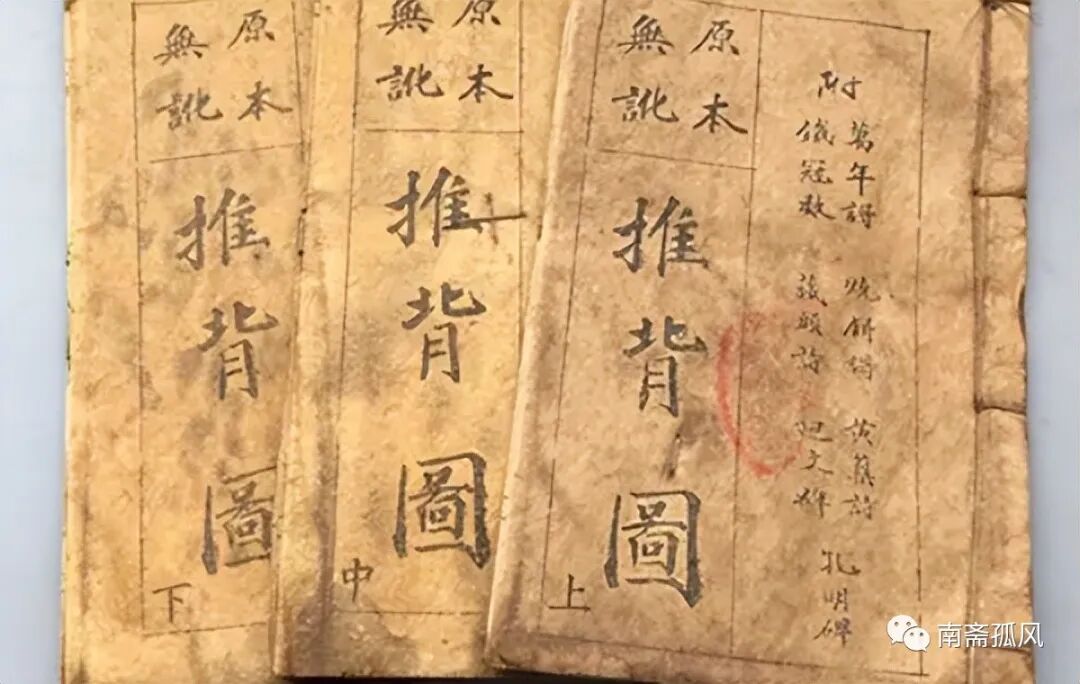 附
萬年 燒餅 詩 孔明碑
鐵冠数 藏頭詩 文碑
原本
無訛
推背圖
上
原本
無訛
推背圖
中
原本
無訛
推背圖
下
南斋孤风